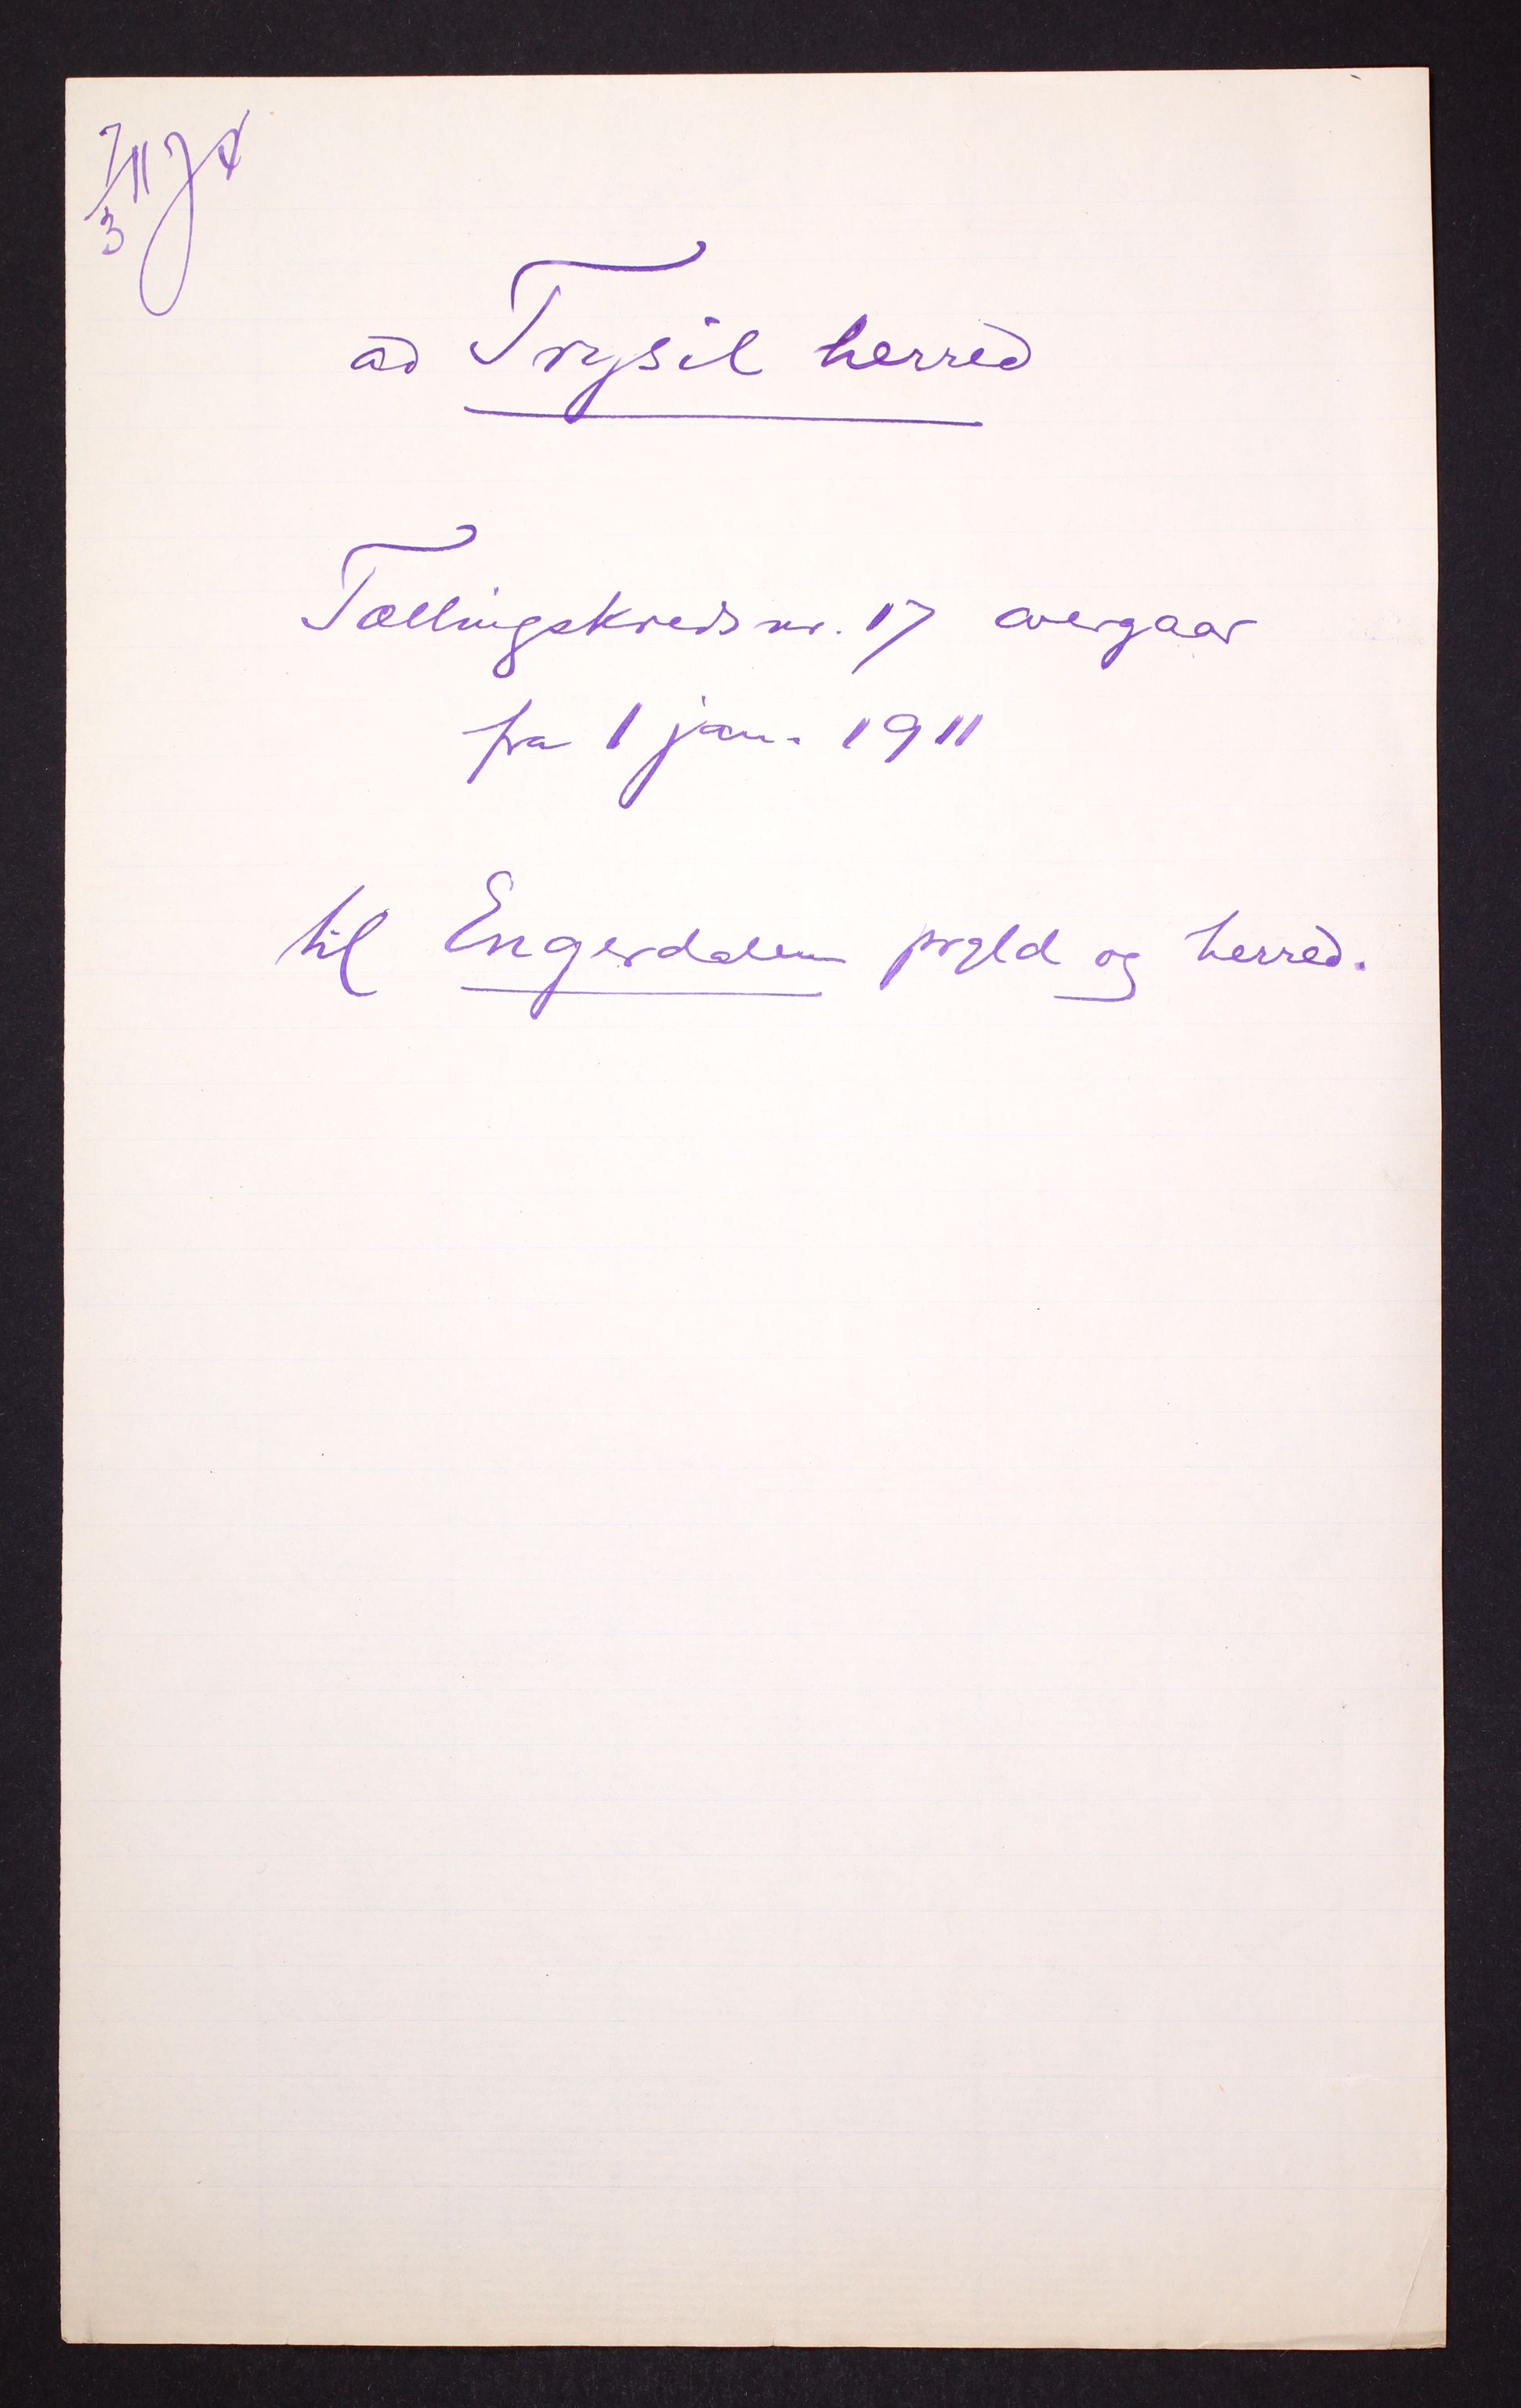 7/3 11
ad Trysil herred
Tællingskreds nr. 17 overgaar
fra 1 jan. 1911
til Engerdalen prgld og herred.